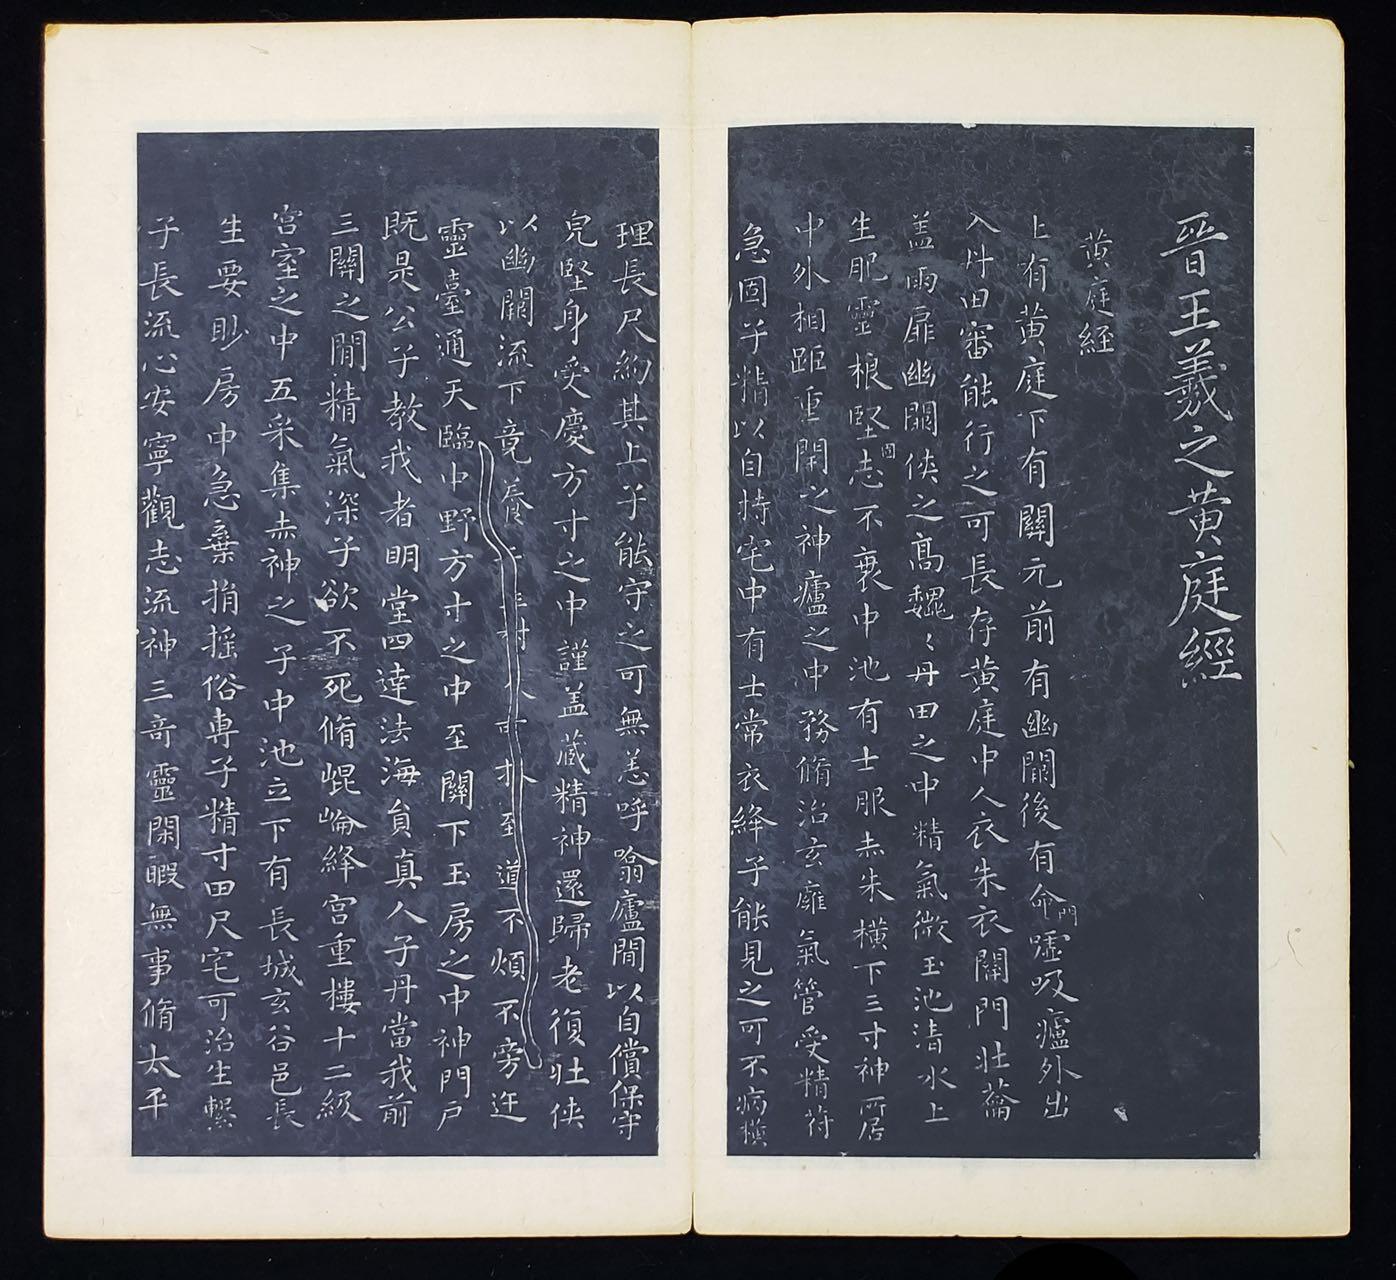 晉王羲之黄庭經
黄庭經
上有黄庭下有關元前有幽闕後有命門嘘吸廬外出
入丹田審能行之可長存黄庭中人衣朱衣關門壯蘥
盖兩扉幽闕俠之高魏〻丹田之中精氣微玉池清水上
生肥靈根堅固志不衰中池有士服赤朱横下三寸神所居
中外相距重閉之神廬之中務脩治玄廱氣管受精符
急固子精以自持宅中有士常衣絳子能見之可不病横
理長尺約其上子能守之可無恙呼噏廬間以自償保守
皃堅身受慶方寸之中謹盖藏精神還歸老復壯俠
以幽闕流下竟養子玉樹不可扶至道不煩不旁迕
靈臺通天臨中野方寸之中至關下玉房之中神門戶
既是公子教我者明堂四達法海員真人子丹當我前
三關之間精氣深子欲不死脩崐崘絳宫重樓十二級
宫室之中五采集赤神之子中池立下有長城玄谷邑長
生要眇房中急棄捐摇俗專子精寸田尺宅可治生繫
子長流心安寧觀志流神三奇靈閑暇無事脩太平